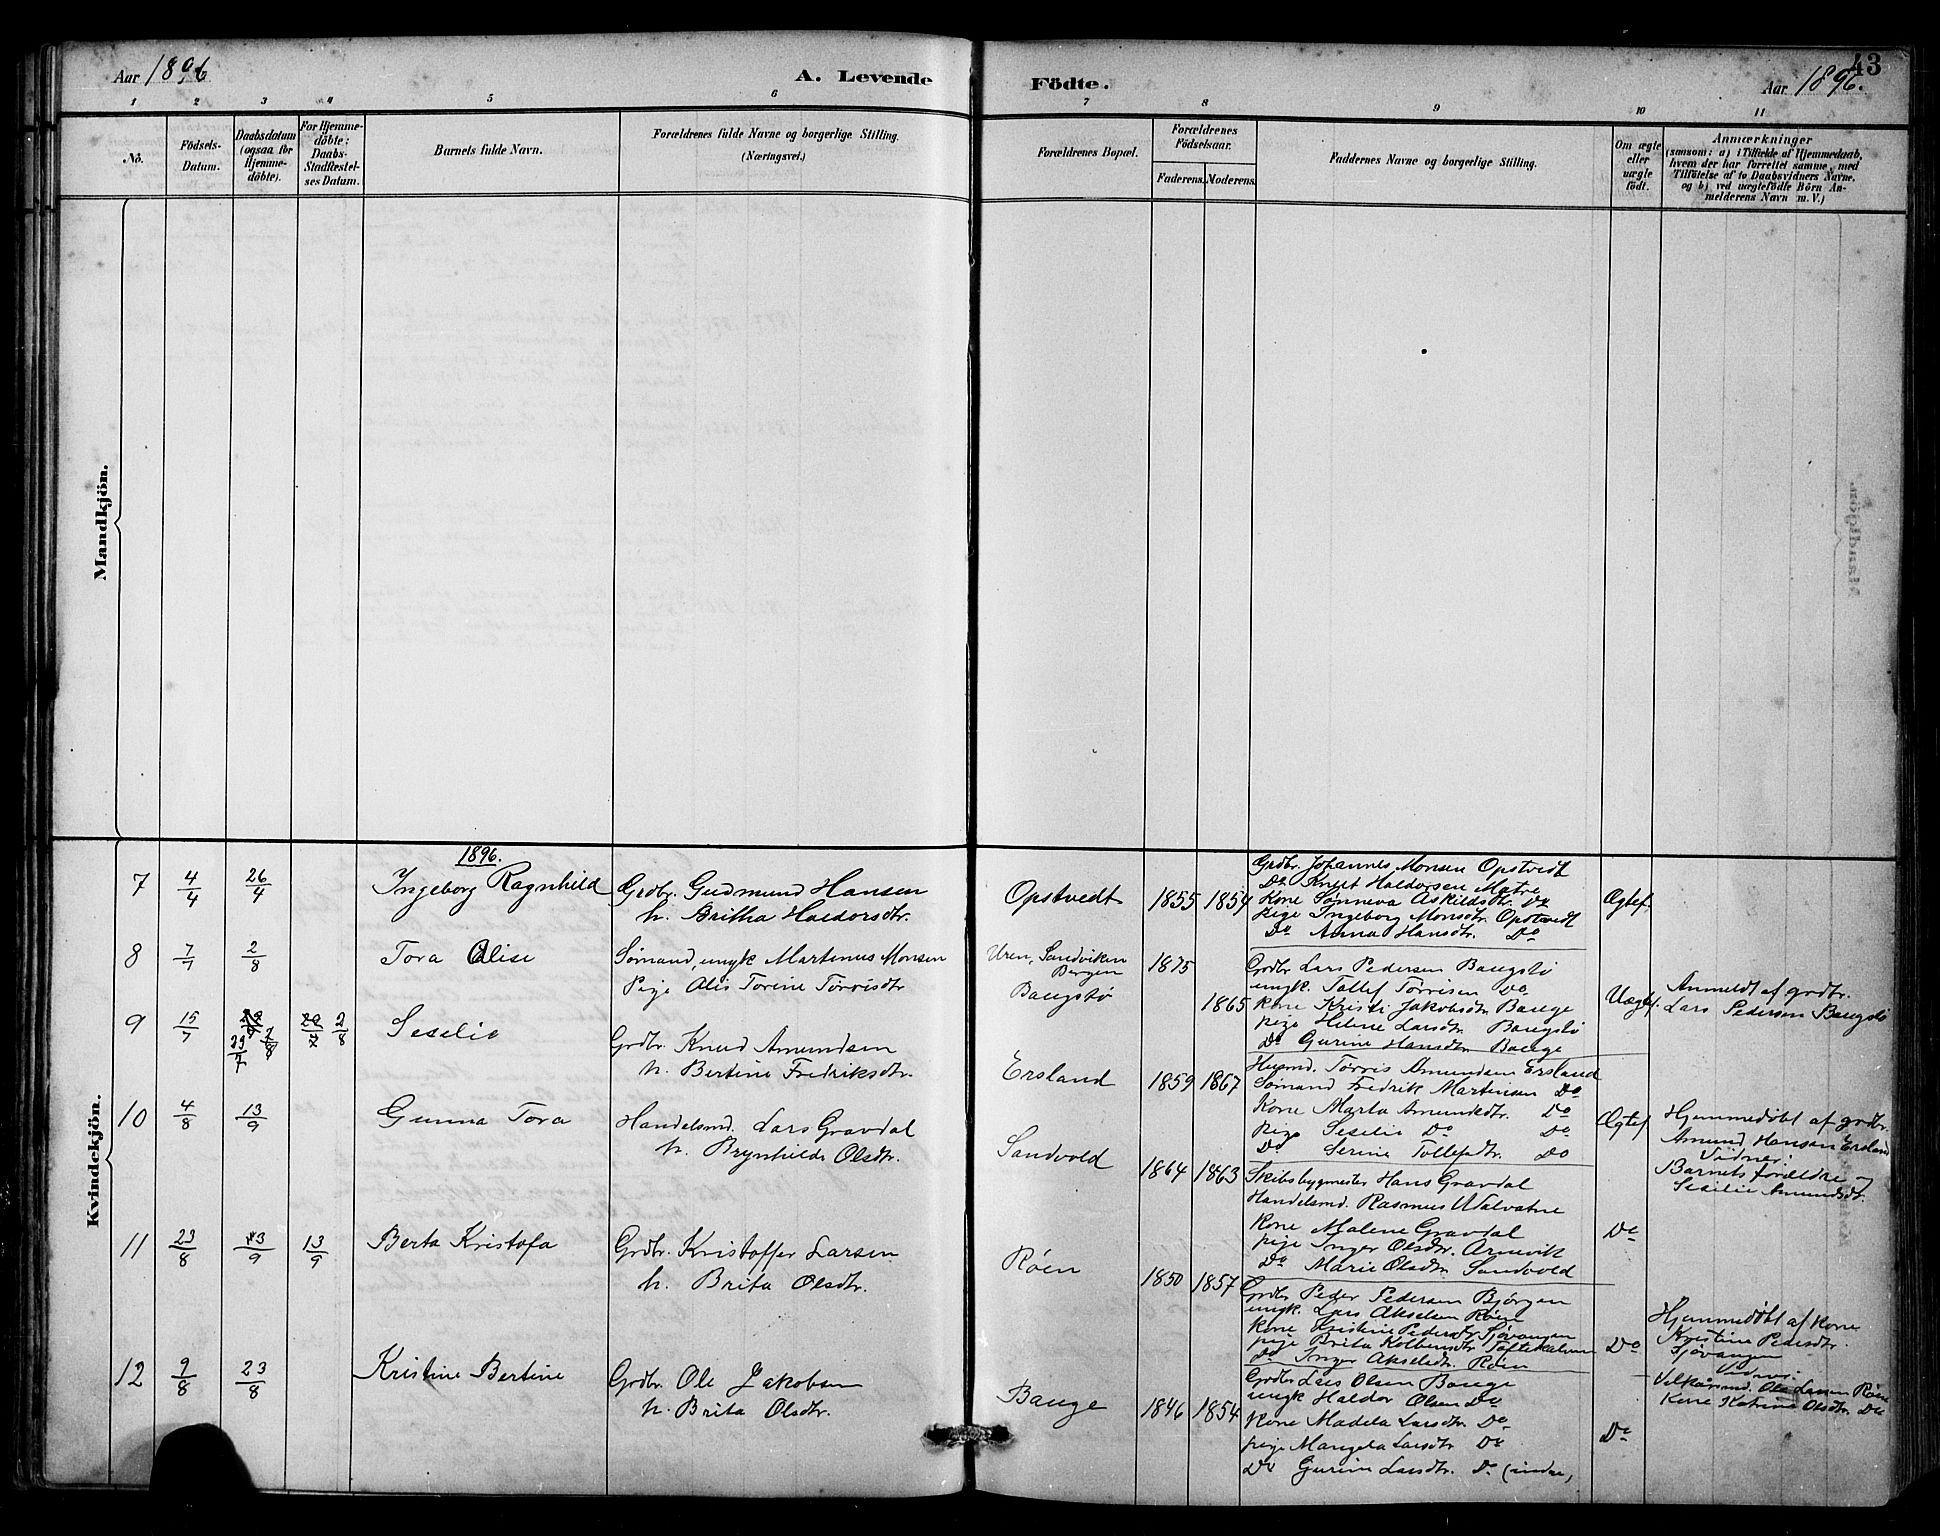 Aar 1896
A. Levende
Födte.
43
Aar 1896.
1 2 3 4 5 6 7 8 9 10 11
No.
Födsels-
Datum.
Daabsdatum
(ogsaa for
Hjemme-
döbte).
For Hjemme-
döbte:
Daabs-
Stadfæstel-
ses Datum.
Barnets fulde Navn.
Forældrenes fulde Navne og borgerlige Stilling.
(Næringsvei.)
Forældrenes Bopæl.
Forældrenes
Födselsaar.
Faderens. Moderens.
Faddernes Navne og borgerlige Stilling.
Om ægte
eller
uægte
født.
Anmærkninger
(saasom: a) i Tilfælde af Hjemmedaab,
hvem der har forrettet samme, med
Tilföielse af to Daabsvidners Navne,
og b) ved uægtefödte Börn An-
melderens Navn m. V.)
Mandkjön.
Kvindekjön.
1896.
7 4/4 26/4
Ingeborg Ragnhild
Grdbr. Gudmund Hansen
h. Britha Haldorsdtr.
Opstvedt
1855 1854
Grdbr. Johannes Monsen Opstvedt
Do Knut Haldorsen Matre
Kone Sønneva Askildsdtr. Do
Pige Ingeborg Monsdtr. Opstvedt
Do Anna Hansdtr. Do
Ægtef.
8 7/7 2/8
Tora Alise
Sømand, ungk Martinus Monsen
Pige Alis Torine Torrisdtr
Uren, Sandviken
Bergen
Baugstø
1875
1865
Grdbr Lars Pedersen Baugstø
ungk. Tollef Tørrisen Do
Kone Kristi Jakobsdtr Bauge
pige Helene Larsdtr Baugstø
Do Gurine Hansdtr Bauge
Uægtef.
Anmeldt af grdbr.
Lars Pedersen Baugstø
9 15/7 23/7 2/8
Seselie
Grdbr. Knud Amundsen
h. Bertine Fredriksdtr.
Ersland
1859 1867
Husmd. Torris Amundsen Ersland
Sømand Fredrik Martinsen Do
Kone Marta Amundsdtr. Do
Pige Seselie Do Do
Do Serine Tollefsdtr. Do
Ægtef
Hjemmedøbt af grdbr.
Amund Hansen Ersland
Vidner:
Barnets forældre og
Seselie Amundsdtr.
10 4/8 13/9
Gunna Tora
Handelsmd. Lars Gravdal
h. Brynhilde Olsdtr.
Sandvold
1864 1863
Skibsbygmester Hans Gravdal
Handelsmd. Rasmus Valvatne
Kone Malene Gravdal
pige Inger Olsdtr. Arnevik
Do Marie Olsdtr. Sandvold
Do
11 23/8 13/9
Berta Kristofa
Grdbr. Kristoffer Larsen
h. Brita Olsdtr.
Røen
1850 1857
Grdbr Peder Pedersen Bjørgen
ungk. Lars Akselsen Røen
Kone Kristine Pedersdtr Sjøvangen
pige Brita Kolbensdtr
Do Inger Akselsdtr. Røen
Do
Hjemmedøbt af Kone
Kristine Pedersdtr.
Sjøvangen
Vidner:
Ole Larsen Røen
Kone Katrine Olsdtr. Do
12 9/8 23/8
Kristine Bertine
Grdbr. Ole Jakobsen
h. Brita Olsdtr.
Bauge
1846 1854
Grdbr Lars Olsen Bauge
ungk Haldor Olsen Do
Kone Madela Larsdtr. Do
pige Mangela Larsdtr Do
Do Gurine Larsdtr. Do (indre)
Do